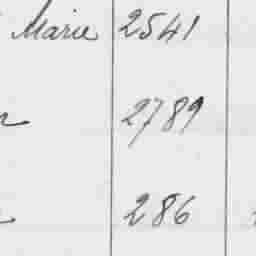 Marie 2541
2789
286